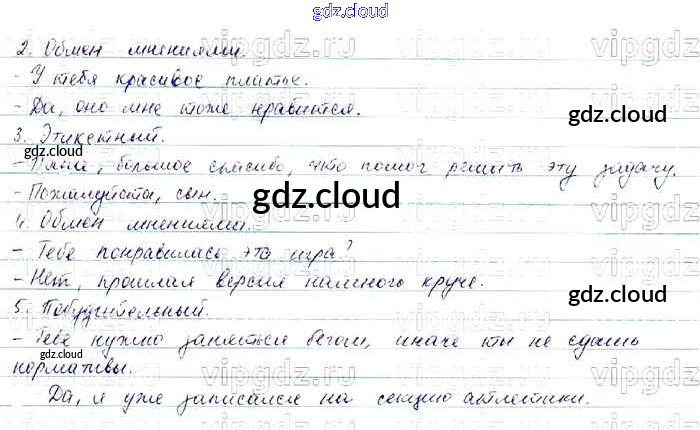 gdz.cloud
2. Обмен мнениями.
- У тебя красивое платье.
- Да, оно мне тоже нравится.
gdz.cloud
3. Этикетный.
- Папа, большое спасибо, что помог решить эту задачу.
gdz.cloud
- Пожалуйста, сын.
gdz.cloud
4. Обмен мнениями.
- Тебе понравилась эта игра?
- Нет, прошлая версия намного круче.
gdz.cloud
5. Побудительный.
- Тебе нужно заняться бегом, иначе ты не сдашь
gdz.cloud
нормативы.
Да, я уже записался на секцию атлетики.
gdz.cloud
vipgdz.ru